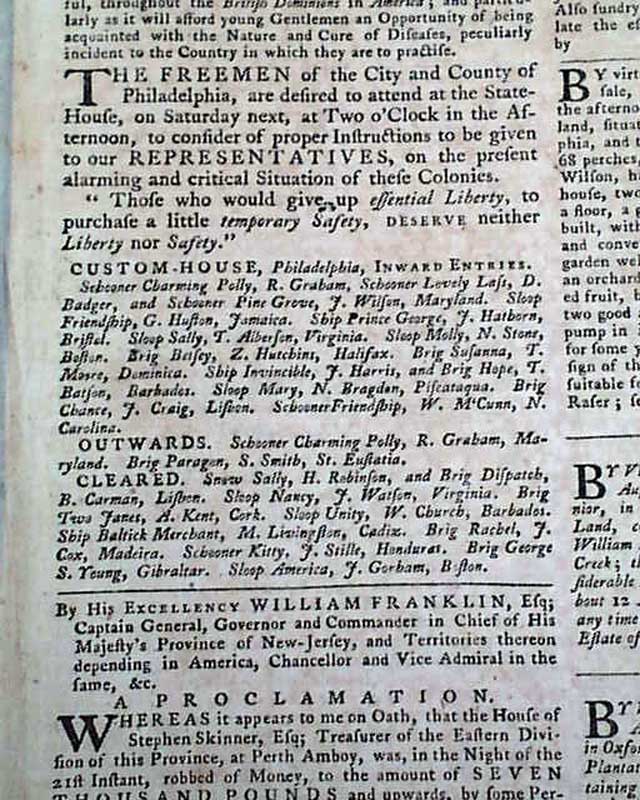 ful, throughout the British Dominions in America; and particu-
larly as it will afford young Gentlemen an Opportunity of being
acquainted with the Nature and Cure of Diſeaſes, peculiarly
incident to the Country in which they are to practiſe.
THE FREEMEN of the City and County of
Philadelphia, are deſired to attend at the State-
Houſe, on Saturday next, at Two o'Clock in the Af-
ternoon, to conſider of proper Inſtructions to be given
to our REPRESENTATIVES, on the preſent
alarming and critical Situation of theſe Colonies.
“ Thoſe who would give up eſſential Liberty, to
purchaſe a little temporary Safety, DESERVE neither
Liberty nor Safety.”
CUSTOM-HOUSE, Philadelphia, INWARD ENTRIES.
Schooner Charming Polly, R. Graham, Schooner Lovely Laſs, D.
Badger, and Schooner Pine Grove, J. Wilſon, Maryland. Sloop
Friendſhip, G. Huſton, Jamaica. Ship Prince George, J. Hathorn,
Briſtol. Sloop Sally, T. Alberſon, Virginia. Sloop Molly, N. Stone,
Boſton. Brig Betſey, Z. Hutchins, Halifax. Brig Suſanna, T.
Moore, Dominica. Ship Invincible, J. Harris, and Brig Hope, T.
Batſon, Barbados. Sloop Mary, N. Bragdon, Piſcataqua. Brig
Chance, J. Craig, Liſbon. Schooner Friendſhip, W. M'Cunn, N.
Carolina.
OUTWARDS. Schooner Charming Polly, R. Graham, Ma-
ryland. Brig Paragon, S. Smith, St. Euſtatia.
CLEARED. Snow Sally, H. Robinſon, and Brig Diſpatch,
B. Carman, Liſbon. Sloop Nancy, J. Watſon, Virginia. Brig
Two Janes, A. Kent, Cork. Sloop Unity, W. Church, Barbados.
Ship Baltick Merchant, M. Livingſton, Cadix. Brig Rachel, J.
Cox, Madeira. Schooner Kitty, J. Stille, Honduras. Brig George
S. Young, Gibraltar. Sloop America, J. Gorham, Boſton.
By His EXCELLENCY WILLIAM FRANKLIN, Eſq;
Captain General, Governor and Commander in Chief of His
Majeſty's Province of New-Jerſey, and Territories thereon
depending in America, Chancellor and Vice Admiral in the
ſame, &c.
A PROCLAMATION.
WHEREAS it appears to me on Oath, that the Houſe of
Stephen Skinner, Eſq; Treaſurer of the Eaſtern Divi-
ſion of this Province, at Perth Amboy, was, in the Night of the
21ſt Inſtant, robbed of Money, to the amount of SEVEN
THOUSAND POUNDS and upwards, by ſome Per-
Alſo ſundry
late the
by
BY virt
ſale,
the afterno
land, ſituat
phia, and
68 perches,
Wilſon,
houſe, two
a floor, a
built, with
and conve
garden wel
an orchard
ed fruit,
two good
pump in
for ſome
ſign of th
ſuitable
Raſer;
BY
nior, in
Land,
William
Creek;
ſiderable
bout 12
any time
Eſtate of
BY
in Oxfo
Plantat
taining